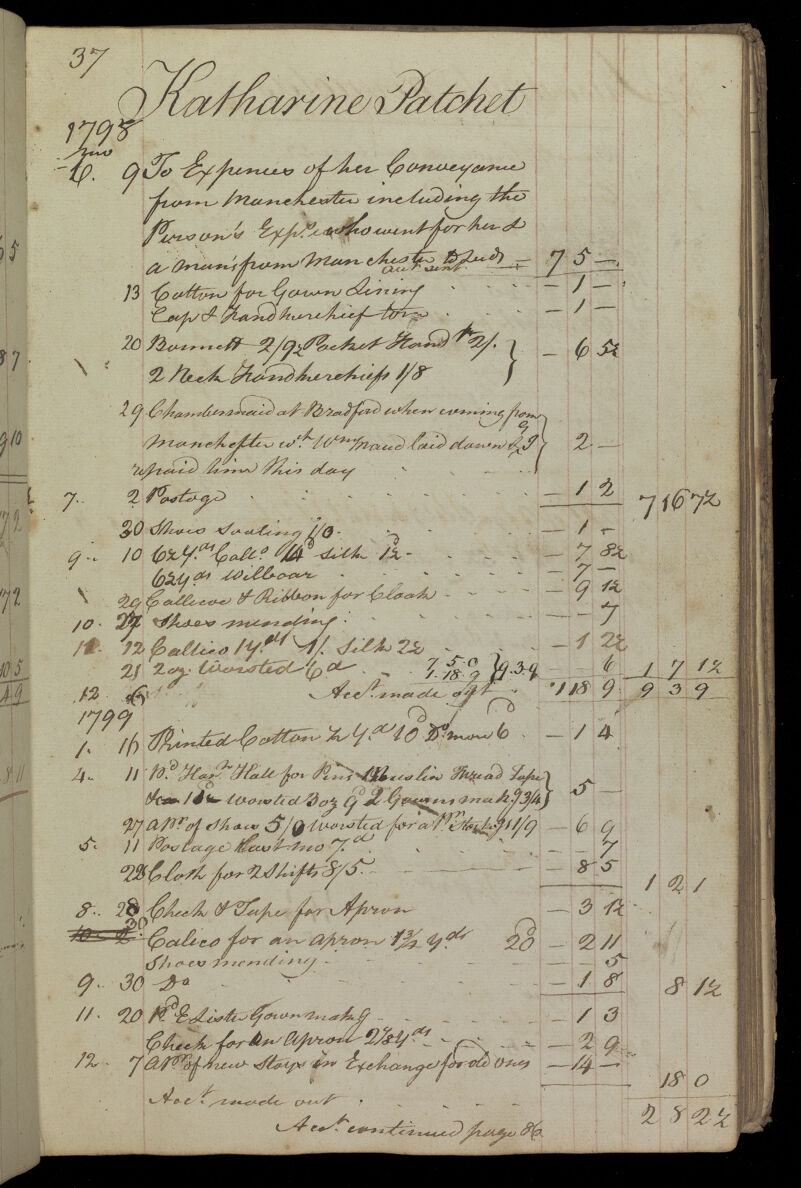 37
Katharine Patchet
1798
mo
6. 9 To Expences of her Conveyance
from Manchester including the
Person's Exp.s who went for her &
a man's from Manchester to Leeds — 7 5 —
out sent
13 Cotton for Gown Lining — 1 —
Cap & Handkerchief — 1 —
20 Bonnett 2/9½ Pocket Hand 2/.
2 Neck Handkerchiefs 1/8 } — 6 5½
29 Chambermaid at Bradford when coming from
Manchester wt Wm laid down by
repaid him this day } 2 —
7. 2 Postage — 1 2 7 16 7½
30 Shoes Soaling 1/0 — 1 —
9. 10 6½ yds Calло 14d Silk 1½ — 7 8½
6½ yds Wilboar — 7 —
29 Callicoe & Ribbon for Cloak — 9 1½
10. 27 Shoes mending — 7
11. 12 Callico 1 yd 1/. Silk 2½ — 1 2½
21 2 oz. Worsted 6d 7.5.0 6 1 7 1½
1.18.9 } 9.3.9
12. 6 Acct made out 1 18 9 9 3 9
1799
1. 16 Printed Cotton ½ yd 10d Do more 6d — 1 4
4. 11 Pd Han.h Hall for Pins Muslin Thread Tape
1½ Worsted 3 oz 9d 2 Gowns mak.g 3/4 } 5 —
27 a Pr of Shoes 5/0 Worsted for a Pr Stock.gs 1/9 — 6 9
5. 11 Postage last mo 7d — 7
22 Cloth for 2 Shifts 8/5 — 8 5
1 2 1
8. 28 Check & Tape for Apron — 3 1½
30 Calico for an apron 1¾ yds 20d — 2 11
Shoes mending — 5
9. 30 Do — 1 8 8 1½
11. 20 Pd E Lister Gown mak.g — 1 3
Check for an Apron yds — 2 9
12. 7 a Pr of new Stays in Exchange for old ones — 14 —
18 0
Acct made out 2 8 2½
Acct continued page 86